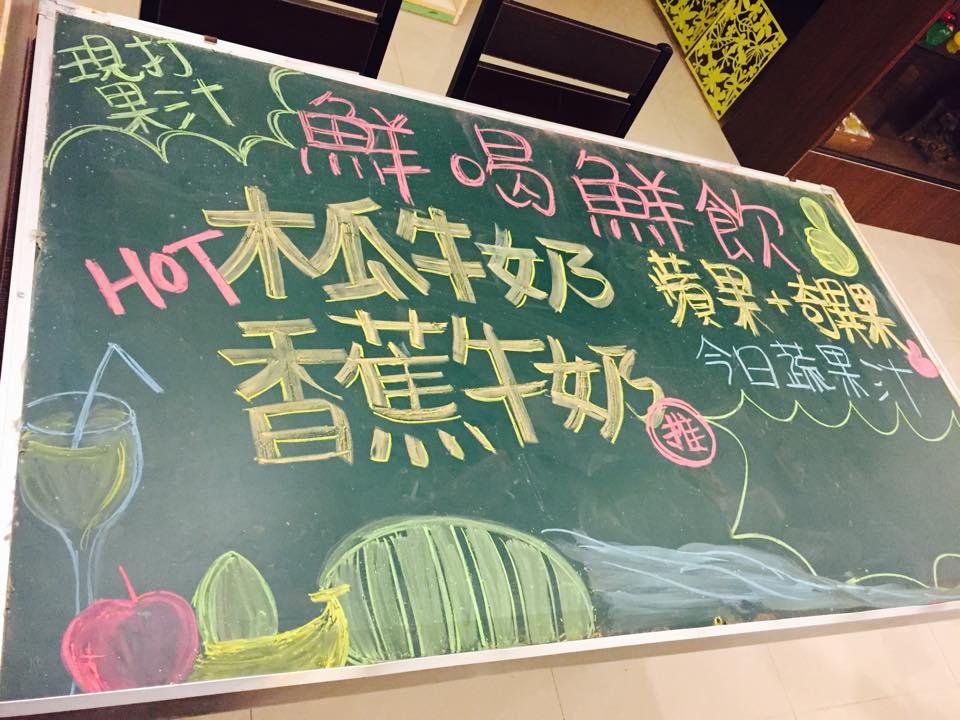 現打
果汁
鮮喝鮮飲
HOT
木瓜牛奶
香蕉牛奶
推
蘋果+奇異果
今日蔬果汁